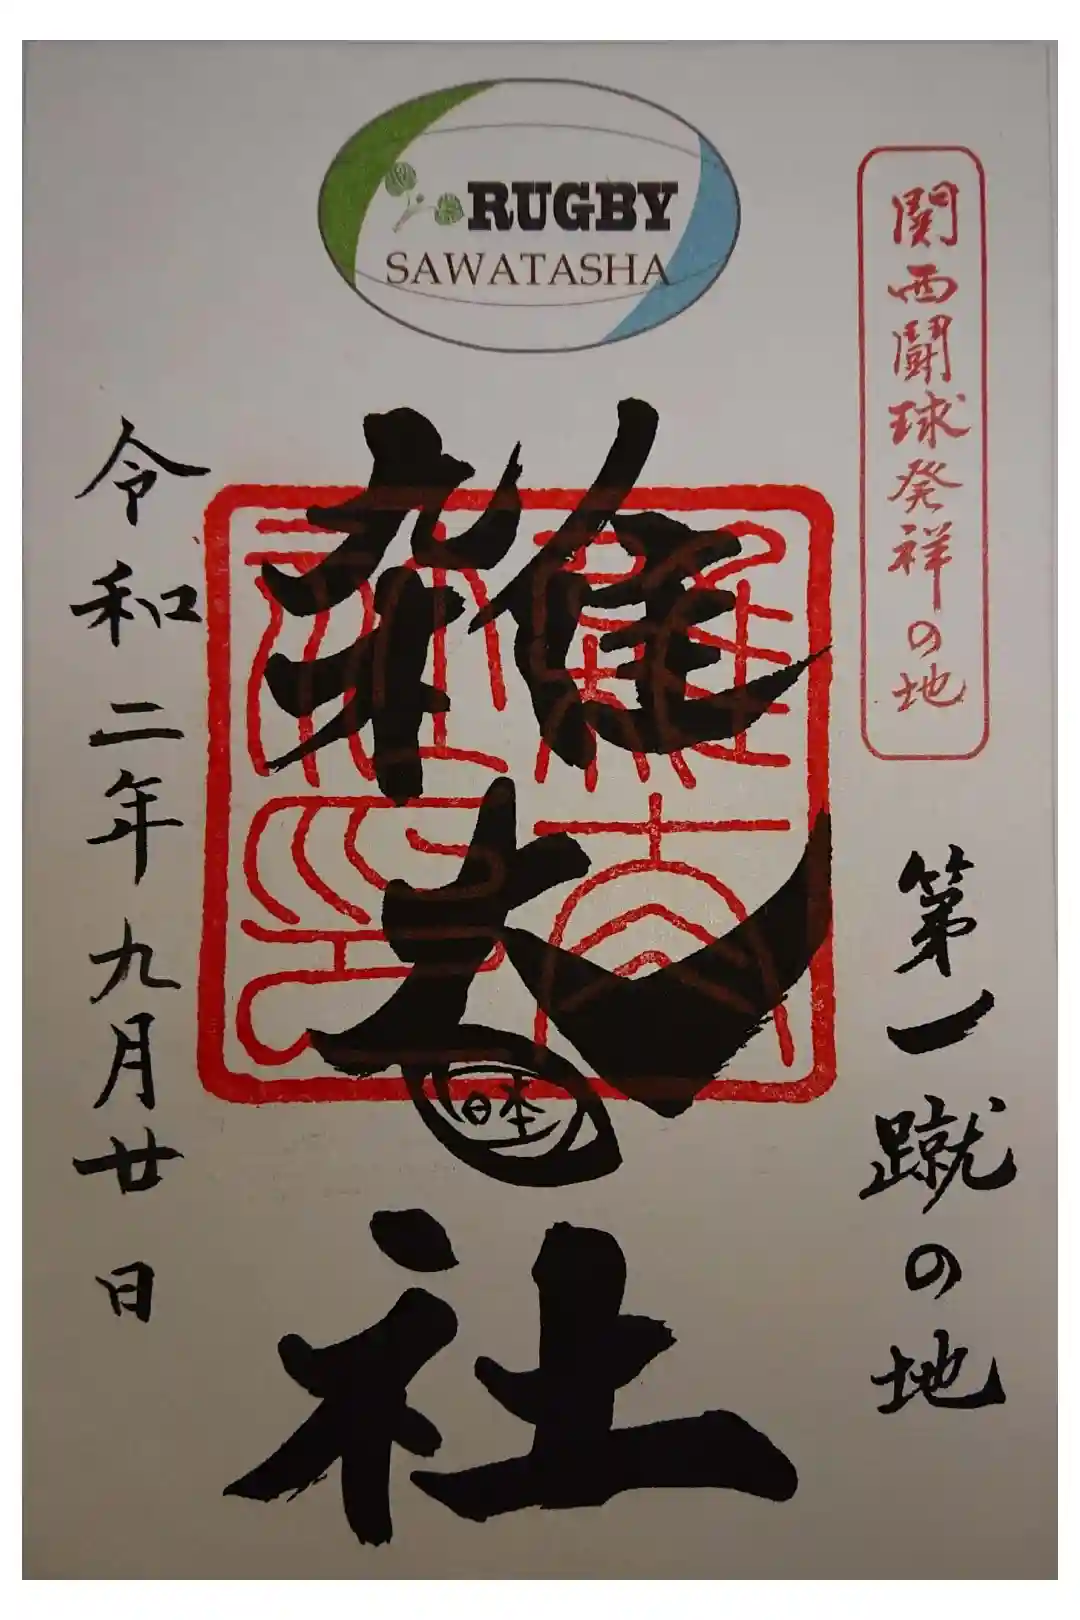 RUGBY
SAWATASHA
関西闘球発祥の地
第一蹴の地
雑太社
雑太社印
令和二年九月廿日